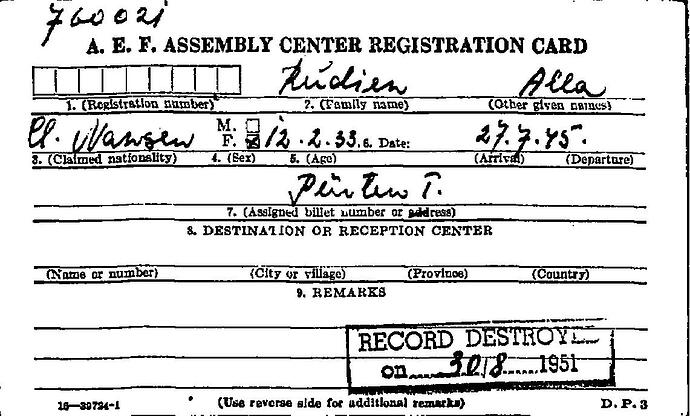 A. E. F. ASSEMBLY CENTER REGISTRATION CARD
Alla
1. (Registration number) 2. (Family name) (Other given names)
M.
F. 12.2.33. 6. Date: 27.7.45.
3. (Claimed nationality) 4. (Sex) 5. (Age) (Arrival) (Departure)
7. (Assigned billet number or address)
8. DESTINATION OR RECEPTION CENTER
(Name or number) (City or village) (Province) (Country)
9. REMARKS
RECORD DESTROYE
on 30/8 1951
16—39724-1 (Use reverse side for additional remarks) D. P. 3